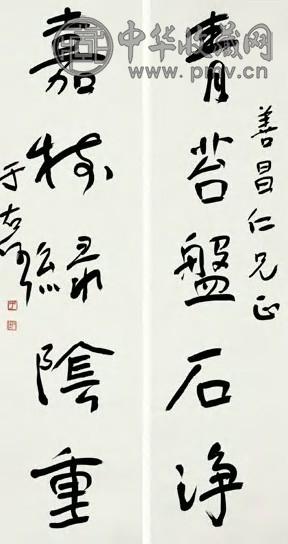 中华收藏网
www.pmv.cn
青苔盤石淨
善昌仁兄正
嘉樹綠陰重
于右任